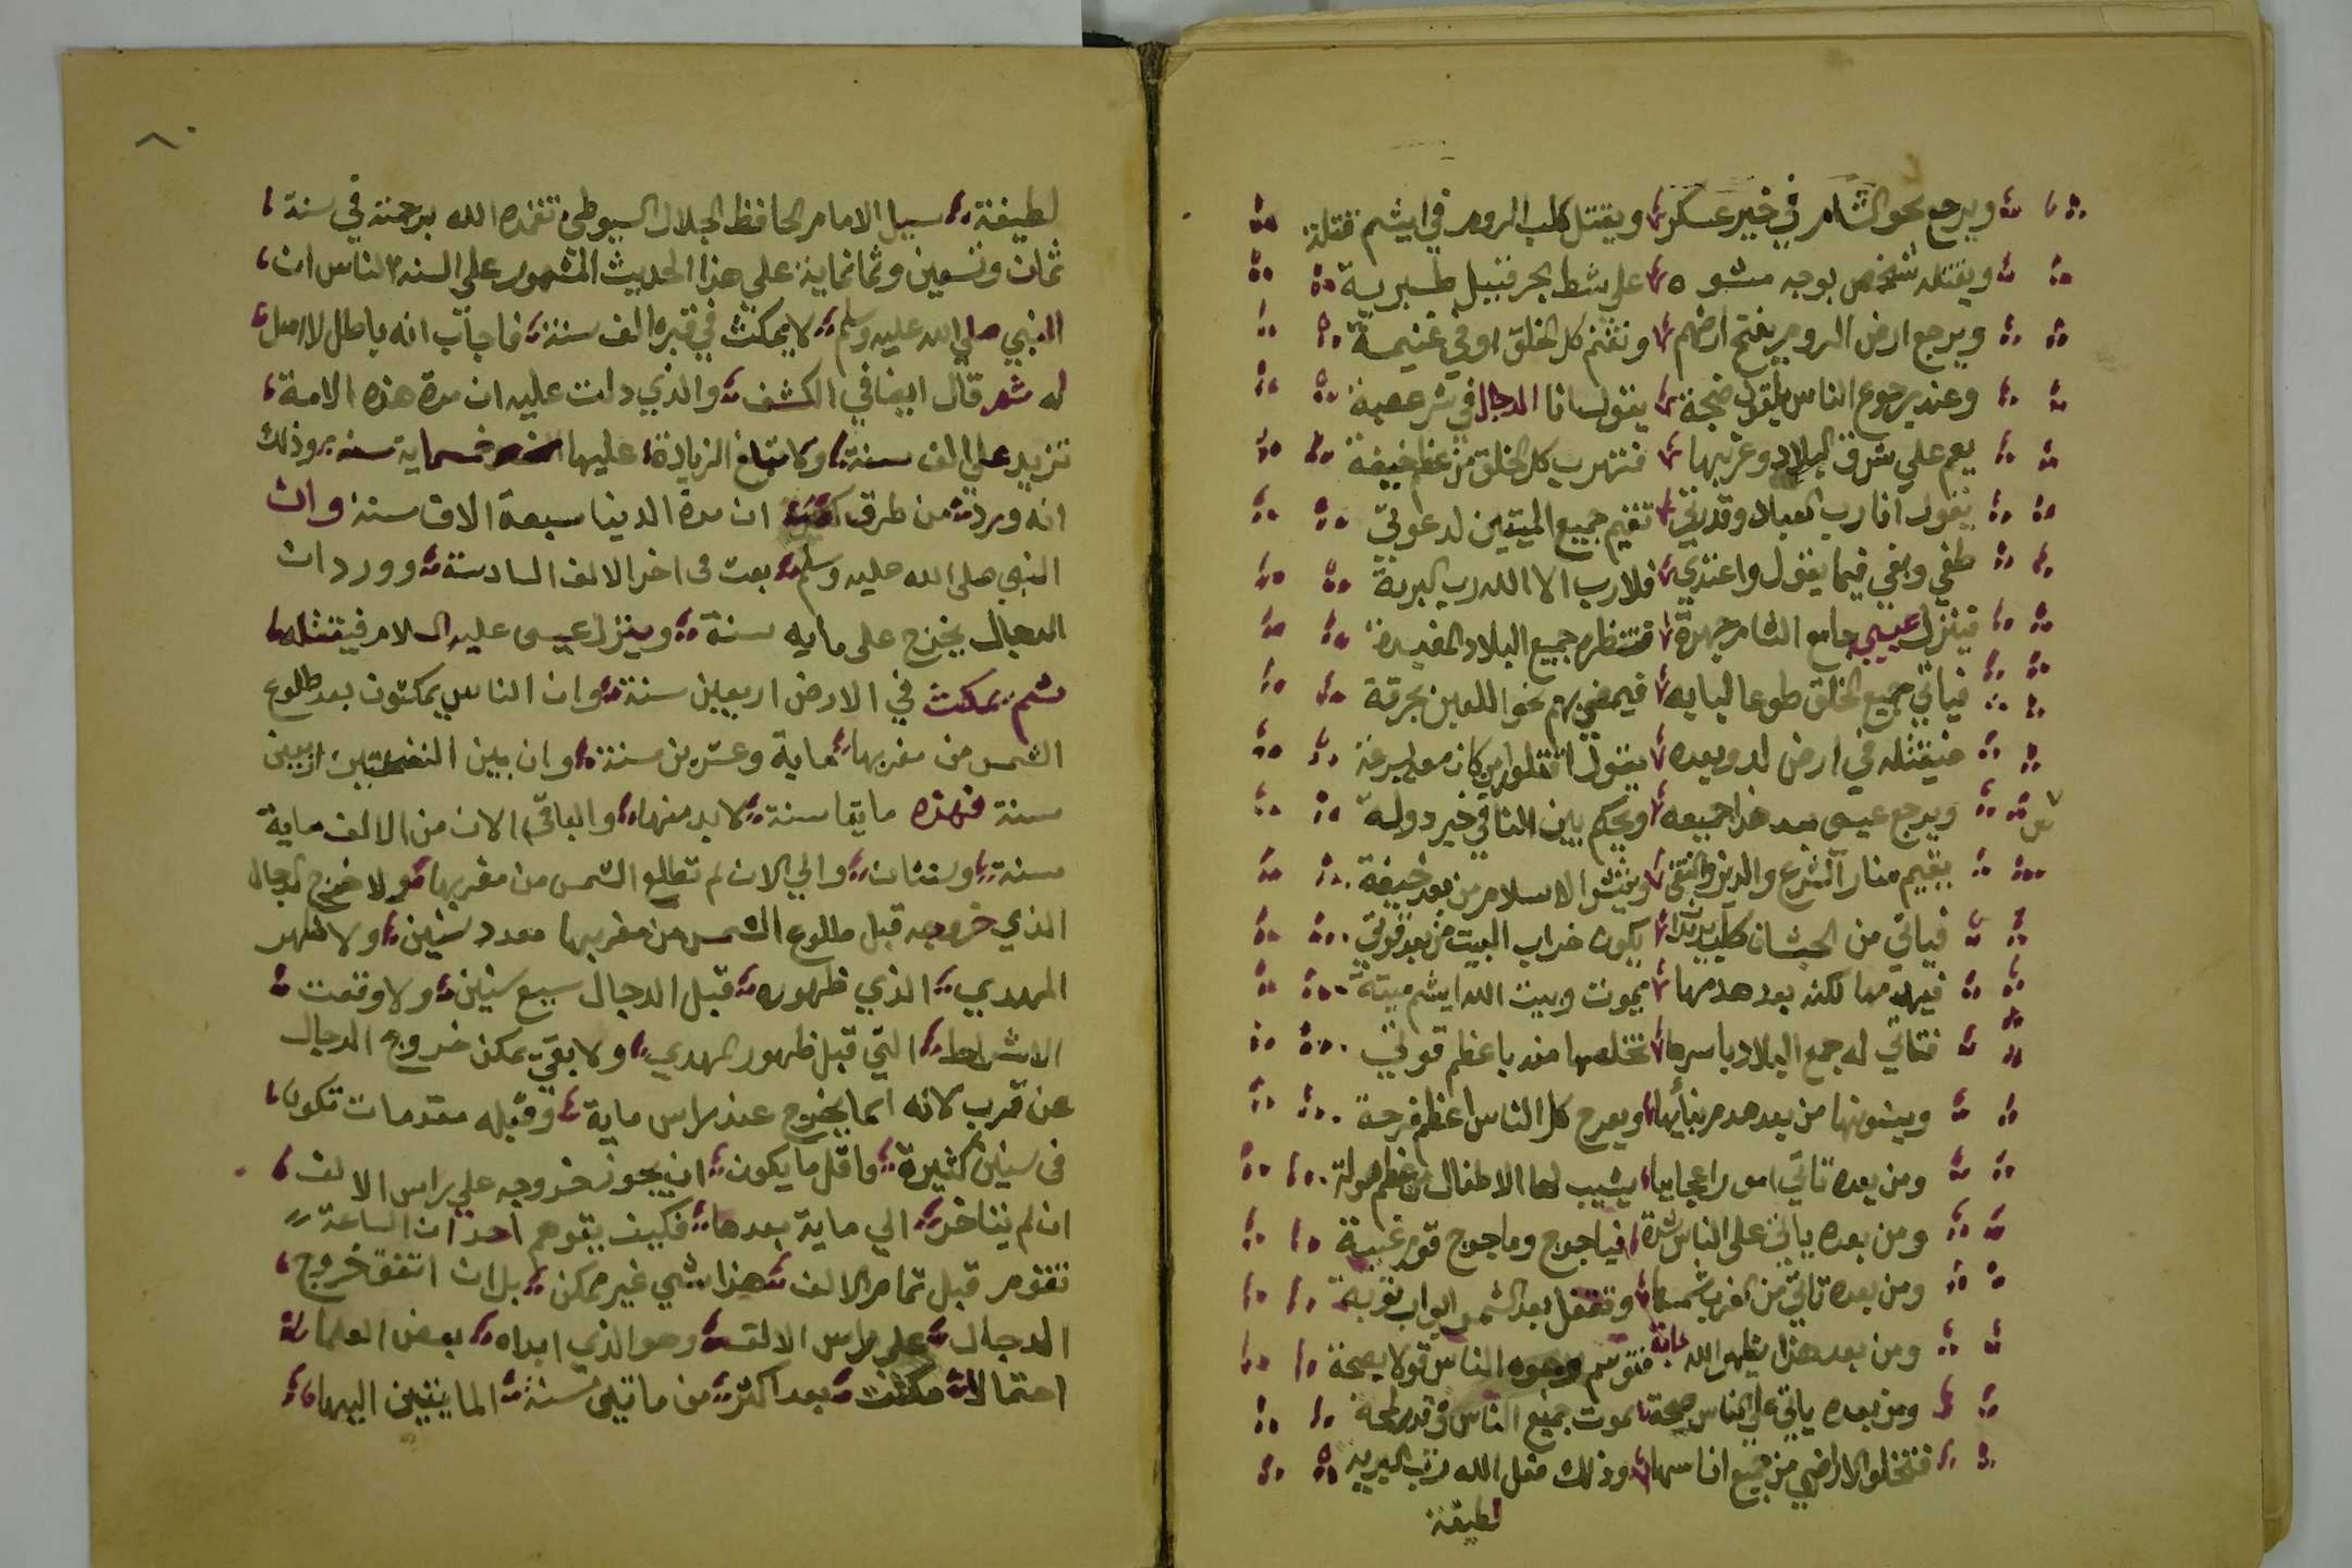 ويرجع نحو الشام في خير عسكر ويقتل كلب الروم في ايشم قتلة
ويقتله شخص بوجه مشوه على شط بحر قبيل طبرية
ويرجع ارض الروم يفتح ارضهم وتغنم كل الخلق اوفي غنيمة
وعند رجوع الناس يلقون ضجة يقول انا الدجال في شر عصبة
يعم علي شرق البلاد وغربها فتهرب كل الخلق من عظم خيفة
يقول انا رب العباد وقدرتي تقيم جميع الميتين لدعوتي
طغي وبغي فيما يقول واعتدي فلا رب الا الله رب البرية
فينزل عيسي جامع الشام جهرة جميع البلاد
فياتي جميع الخلق طوعا لبابه فيمضي بهم نحو اللعين بحرقة
فيقتله في ارض لد وبعده يقول اقتلوا من كان معه بسرعة
ويرجع عيسى بعد هذا جميعه ويحكم بين الناس في خير دولة
يقيم منار الشرع والدين والتقى وينشو الاسلام من بعد خيفة
فياتي من الحبشان كلب يكون خراب البيت من بعد قوتي
فيهدمها لكنه بعد هدمها يموت وبيت الله ايشم ميتة
فتاتي له جمع البلاد باسرها تخلصها منه باعظم قوتي
ويبنونها من بعد هدم بنائها ويفرح كل الناس اعظم فرحة
ومن بعده تاتي امورا عجايبا يشيب لها الاطفال من عظم هولة
ومن بعده ياتي على الناس شدة فياجوج وماجوج قوم غبية
ومن بعده تاتي من الغرب شمسها وتقفل بعد الشمس ابواب توبة
ومن بعد هذا يظهر الله دابة فتوسم وجوه الناس قولا بصحة
ومن بعده ياتي على الناس صيحة يموت جميع الناس في قدر لمحة
فتخلو الاراضي من جميع اناسها وذلك فعل الله رب البرية
لطيفة
٨٠
لطيفة سيل الامام الحافظ الجلال السيوطي تغمده الله برحمته في سنة
ثمان وتسعين وثمانماية علي هذا الحديث المشهور علي السنة الناس ان
النبي صلي الله عليه وسلم لا يمكث في قبره الف سنة فاجاب انه باطل لا اصل
له ثم قال ايضا في الكشف والذي دلت عليه ان مدة هذه الامة
تزيد علي الف سنة ولا تبلغ الزيادة عليها خمسماية سنه وذلك
انه ورد من طرق ان مدة الدنيا سبعة الاف سنة وان
النبي صلى الله عليه وسلم بعث في اخر الالف السادسة وورد ان
الدجال يخرج على مايه سنة وينزل عيسى عليه السلام فيقتله
ثم يمكث في الارض اربعين سنة وان الناس يمكثون بعد طلوع
الشمس من مغربها ماية وعشرين سنة وان بين النفختين اربعين
سنة فهذه مايتا سنة لابد منها والباقي الان من الالف ماية
سنة وسنتان والي الان لم تطلع الشمس من مغربها ولا خرج الدجال
الذي خروجه قبل طلوع الشمس من مغربها بعدد سنين ولا ظهر
المهدي الذي ظهوره قبل الدجال سبع سنين ولا وقعت
الاشراط التي قبل ظهور المهدي ولا بقي يمكن خروج الدجال
عن قرب لانه انما يخرج عند راس ماية وقبله مقدمات تكون
في سنين كثيرة واقل ما يكون ان يجوز خروجه علي راس الالف
ان لم يتاخر الي ماية بعدها فكيف يتوهم احد ان الساعة
تقوم قبل تمام الالف هذا شي غير ممكن بل ان اتفق خروج
الدجال علي راس الالف وهو الذي ابداه بعض العلما
احتمالا مكثت بعد اكثر من مايتي سنة المايتين اليها